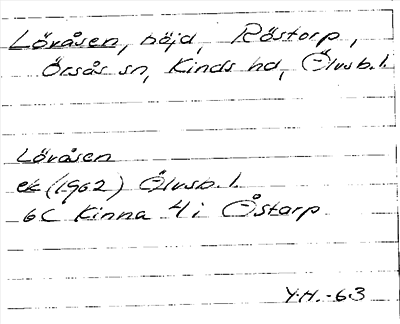 Lövåsen, höjd, Röstorp,
Örsås sn, Kinds hd, Älvsb. l.
Lövåsen
ek (1962) Älvsb. l.
6C Kinna 4 i Åstarp
Y.H. -63